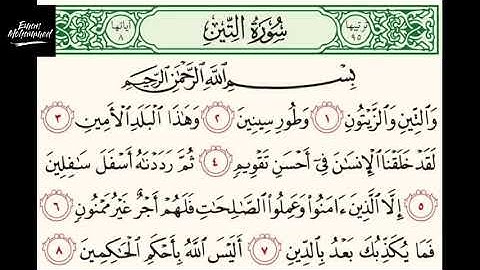 Eman
Mohammed
ترتيبها ٩٥ سُورَةُ التِّينِ آياتها ٨
بِسْمِ اللَّهِ الرَّحْمَٰنِ الرَّحِيمِ
وَالتِّينِ وَالزَّيْتُونِ ١ وَطُورِ سِينِينَ ٢ وَهَٰذَا الْبَلَدِ الْأَمِينِ ٣
لَقَدْ خَلَقْنَا الْإِنسَانَ فِي أَحْسَنِ تَقْوِيمٍ ٤ ثُمَّ رَدَدْنَاهُ أَسْفَلَ سَافِلِينَ
٥ إِلَّا الَّذِينَ ءَامَنُوا وَعَمِلُوا الصَّالِحَاتِ فَلَهُمْ أَجْرٌ غَيْرُ مَمْنُونٍ ٦
فَمَا يُكَذِّبُكَ بَعْدُ بِالدِّينِ ٧ أَلَيْسَ اللَّهُ بِأَحْكَمِ الْحَاكِمِينَ ٨